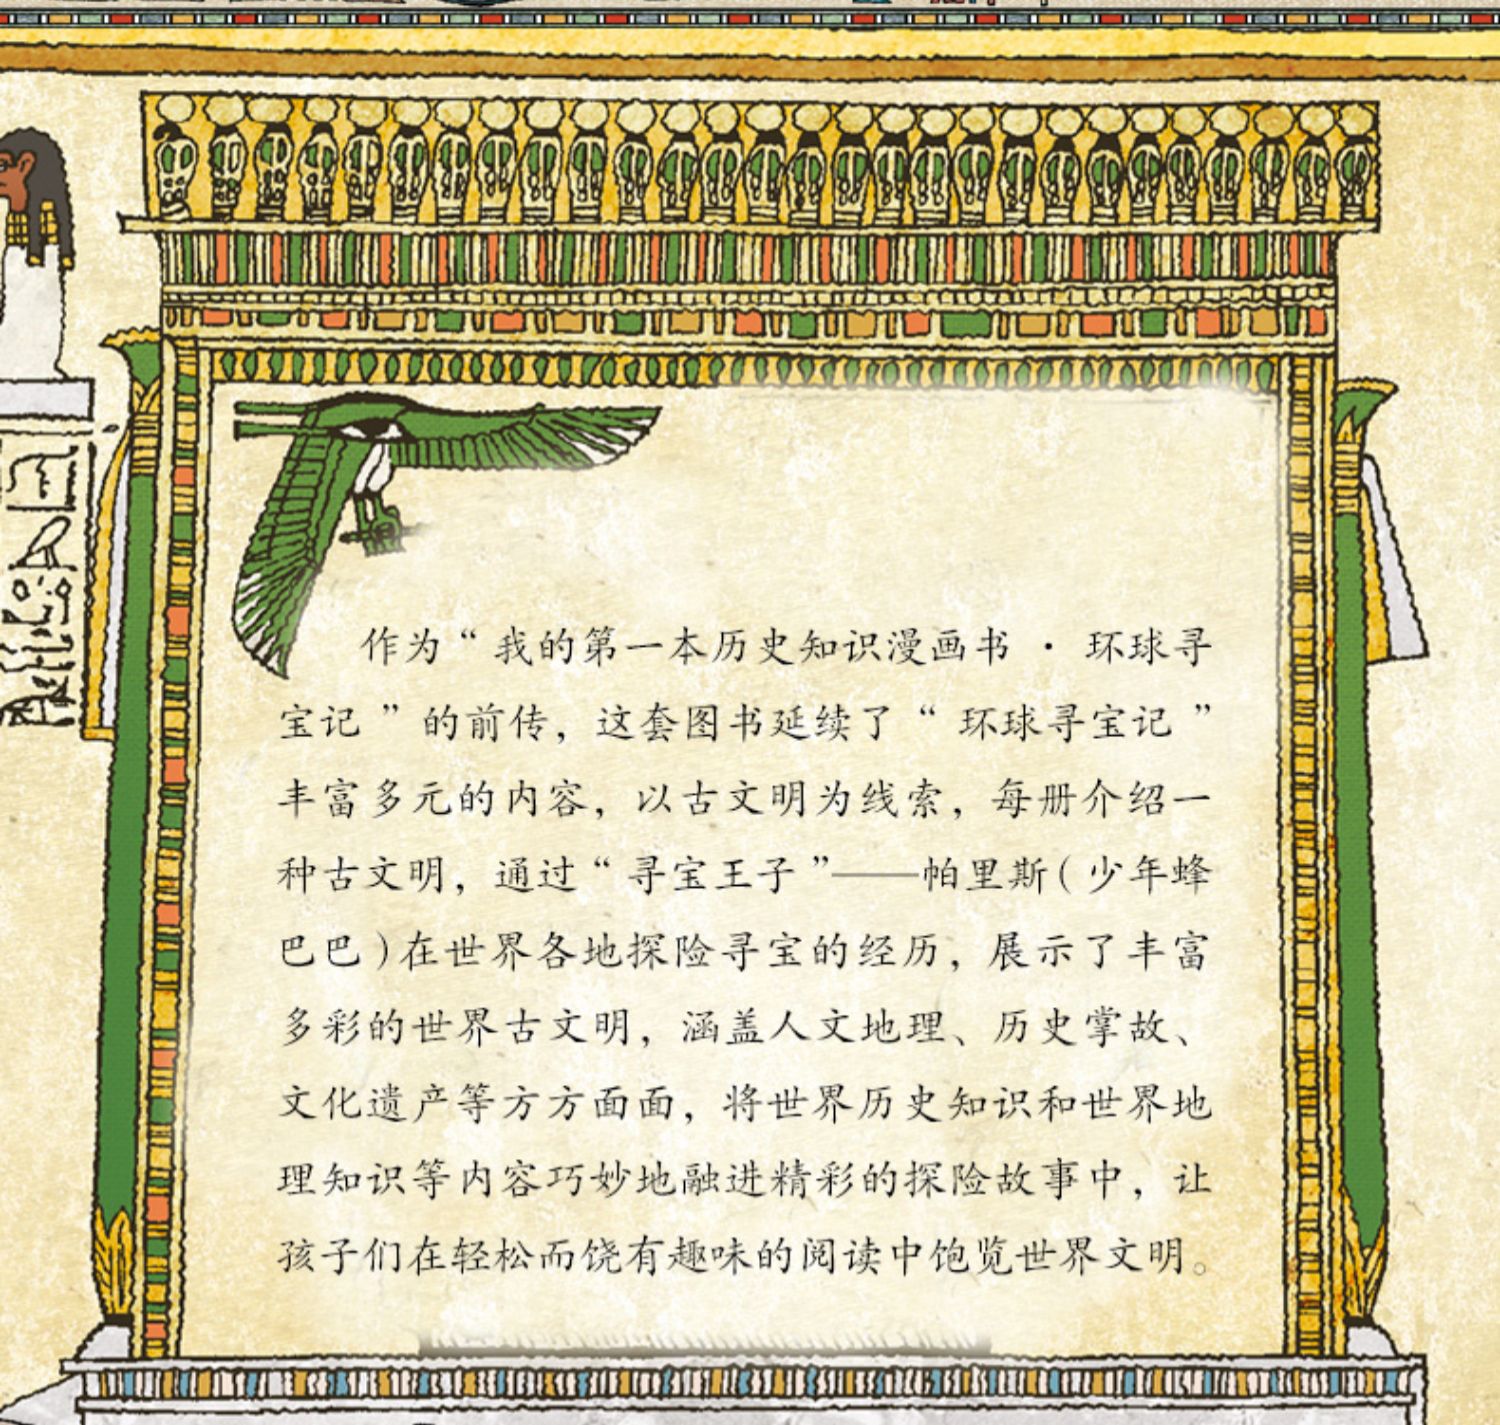 作为“我的第一本历史知识漫画书·环球寻
宝记”的前传，这套图书延续了“环球寻宝记”
丰富多元的内容，以古文明为线索，每册介绍一
种古文明，通过“寻宝王子”——帕里斯（少年蜂
巴巴）在世界各地探险寻宝的经历，展示了丰富
多彩的世界古文明，涵盖人文地理、历史掌故、
文化遗产等方方面面，将世界历史知识和世界地
理知识等内容巧妙地融进精彩的探险故事中，让
孩子们在轻松而饶有趣味的阅读中饱览世界文明。